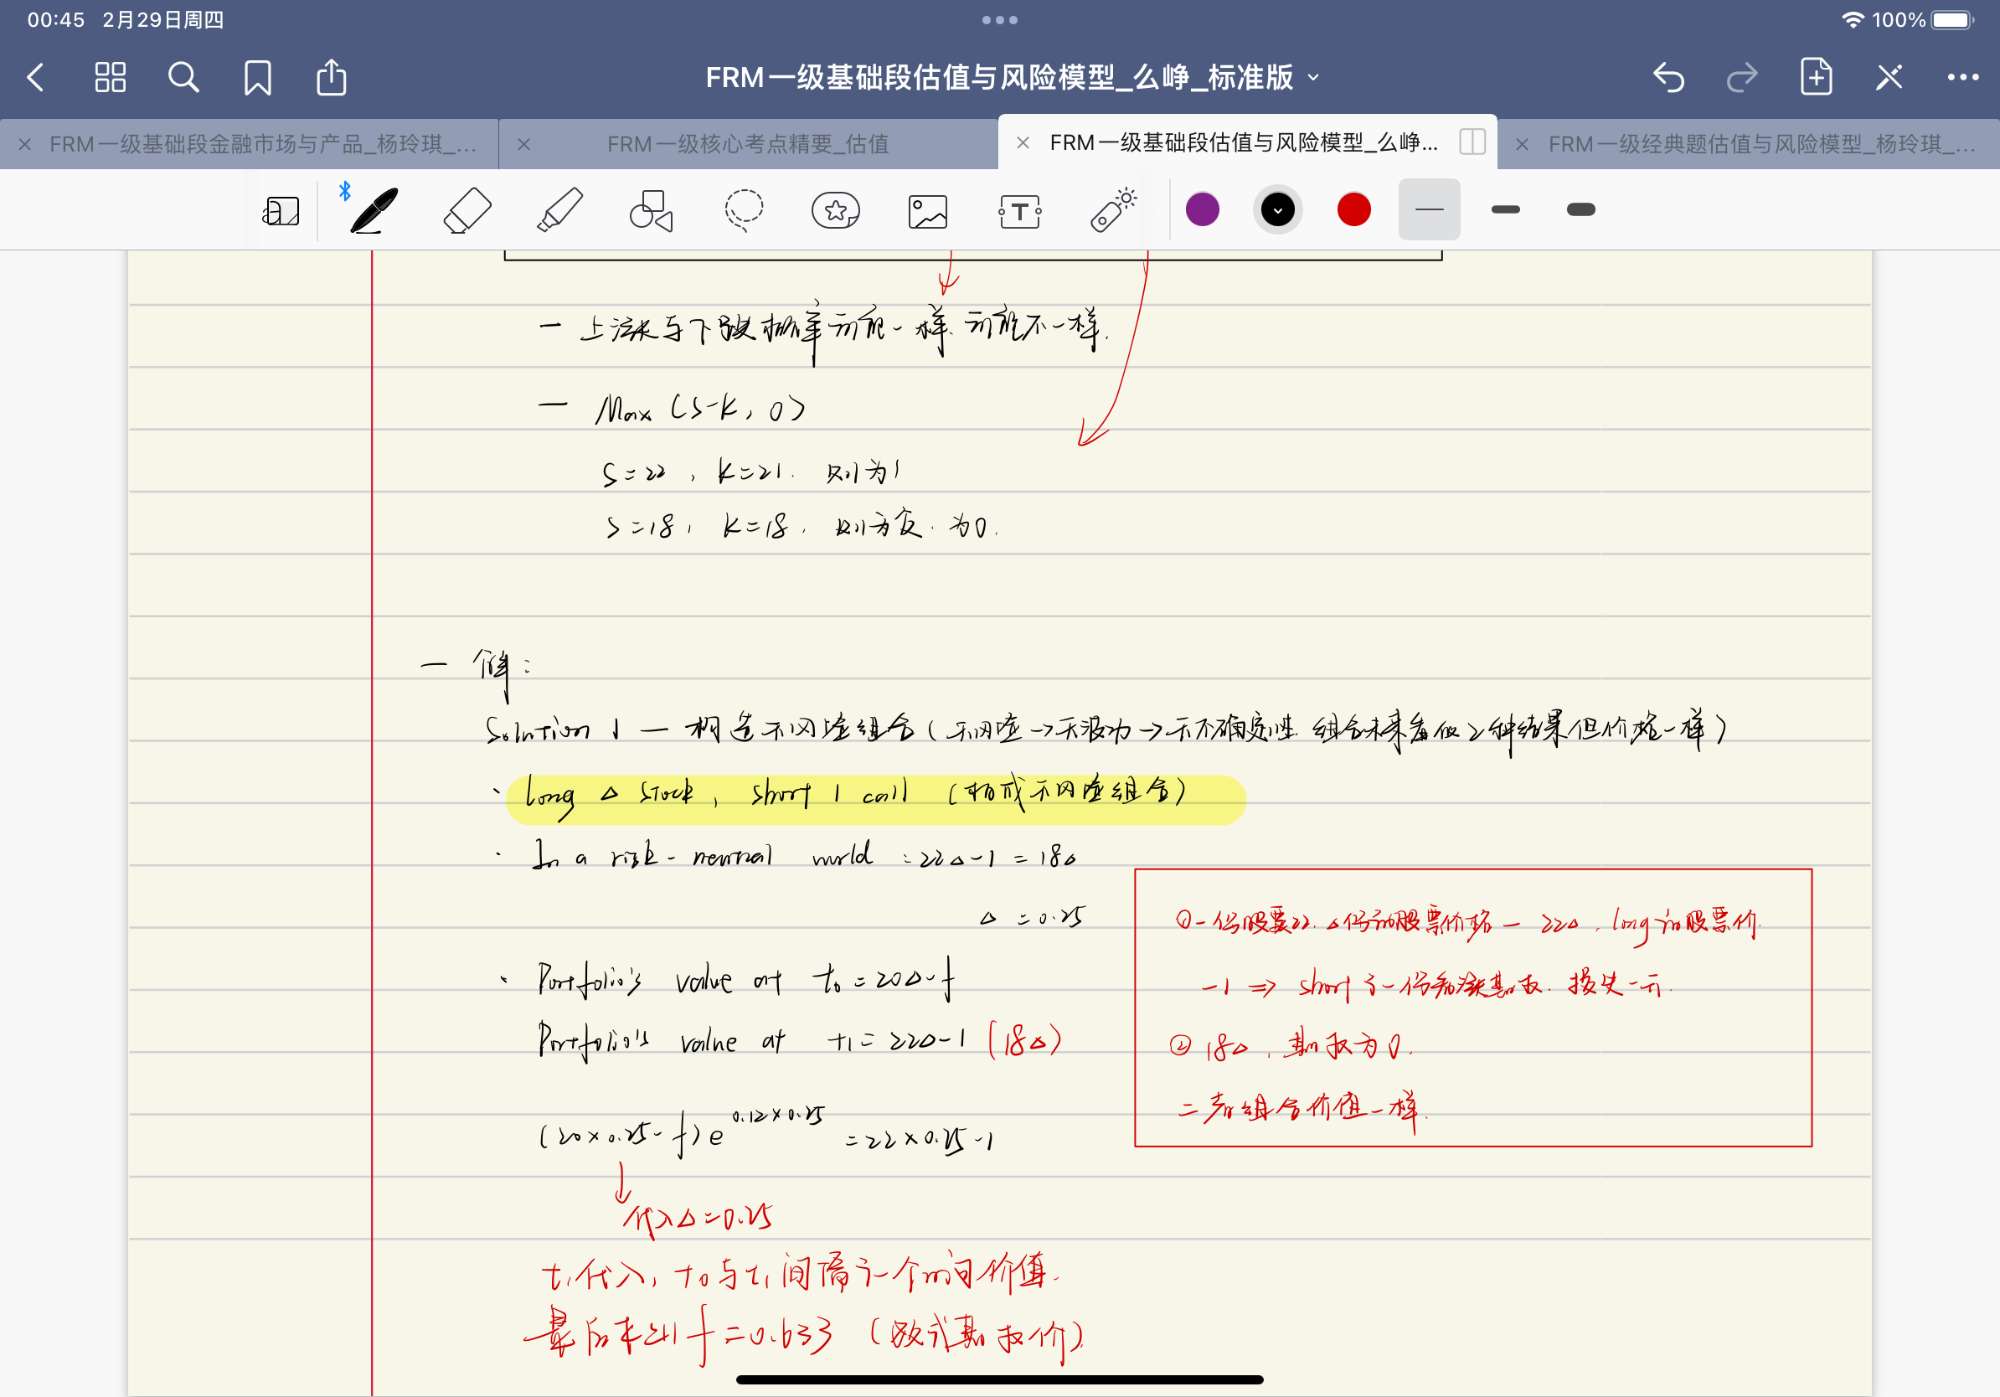 00:45 2月29日周四
100%
FRM一级基础段估值与风险模型_么峥_标准版
FRM一级基础段金融市场与产品_杨玲琪_...
FRM一级核心考点精要_估值
FRM一级基础段估值与风险模型_么峥...
FRM一级经典题估值与风险模型_杨玲琪_...
一 上涨与下跌概率可能一样.可能不一样.
一 Max (S-K, 0)
S=22 , K=21. 则为1
S=18, K=18, 则为负. 为0.
一 解:
Solution 1 一 构造无风险组合(无风险→无波动→无不确定性.组合未来看似2种结果但价格一样)
· long Δ stock, short 1 call (构成无风险组合)
· In a risk-neutral world :22Δ-1=18Δ
Δ=0.25
①一份股票22.Δ份的股票价格一22Δ, long的股票价.
· Portfolio's value at t₀=20Δ-f
-1 => short了一份看涨期权.损失一元.
Portfolio's value at t1=22Δ-1 (18Δ)
②18Δ,期权为0.
二者组合价值一样.
(20×0.25-f)e^0.12×0.25 =22×0.25-1
代入Δ=0.25
t₁代入, t₀与t₁间隔了一个时间价值.
最后求出f=0.633 (欧式期权价)